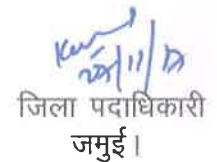 जिला पदाधिकारी
जमुई।